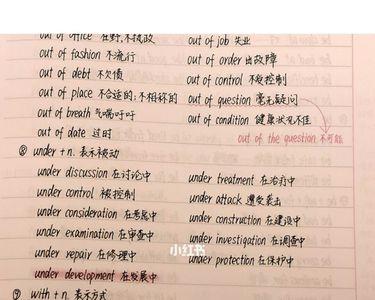 out of office 在野,不执政
out of job 失业
out of fashion 不流行
out of order 出故障
out of debt 不欠债
out of control 不受控制
out of place 不合适的;不相称的
out of question 毫无疑问
out of breath 气喘吁吁
out of condition 健康状况不佳
out of date 过时
out of the question 不可能
⑧ under + n. 表示被动
under discussion 在讨论中
under treatment 在治疗中
under control 被控制
under attack 遭受袭击
under consideration 在考虑中
under construction 在建设中
under examination 在审查中
under investigation 在调查中
under repair 在修理中
under protection 在保护中
under development 在发展中
小红书
⑨ with + n. 表示方式